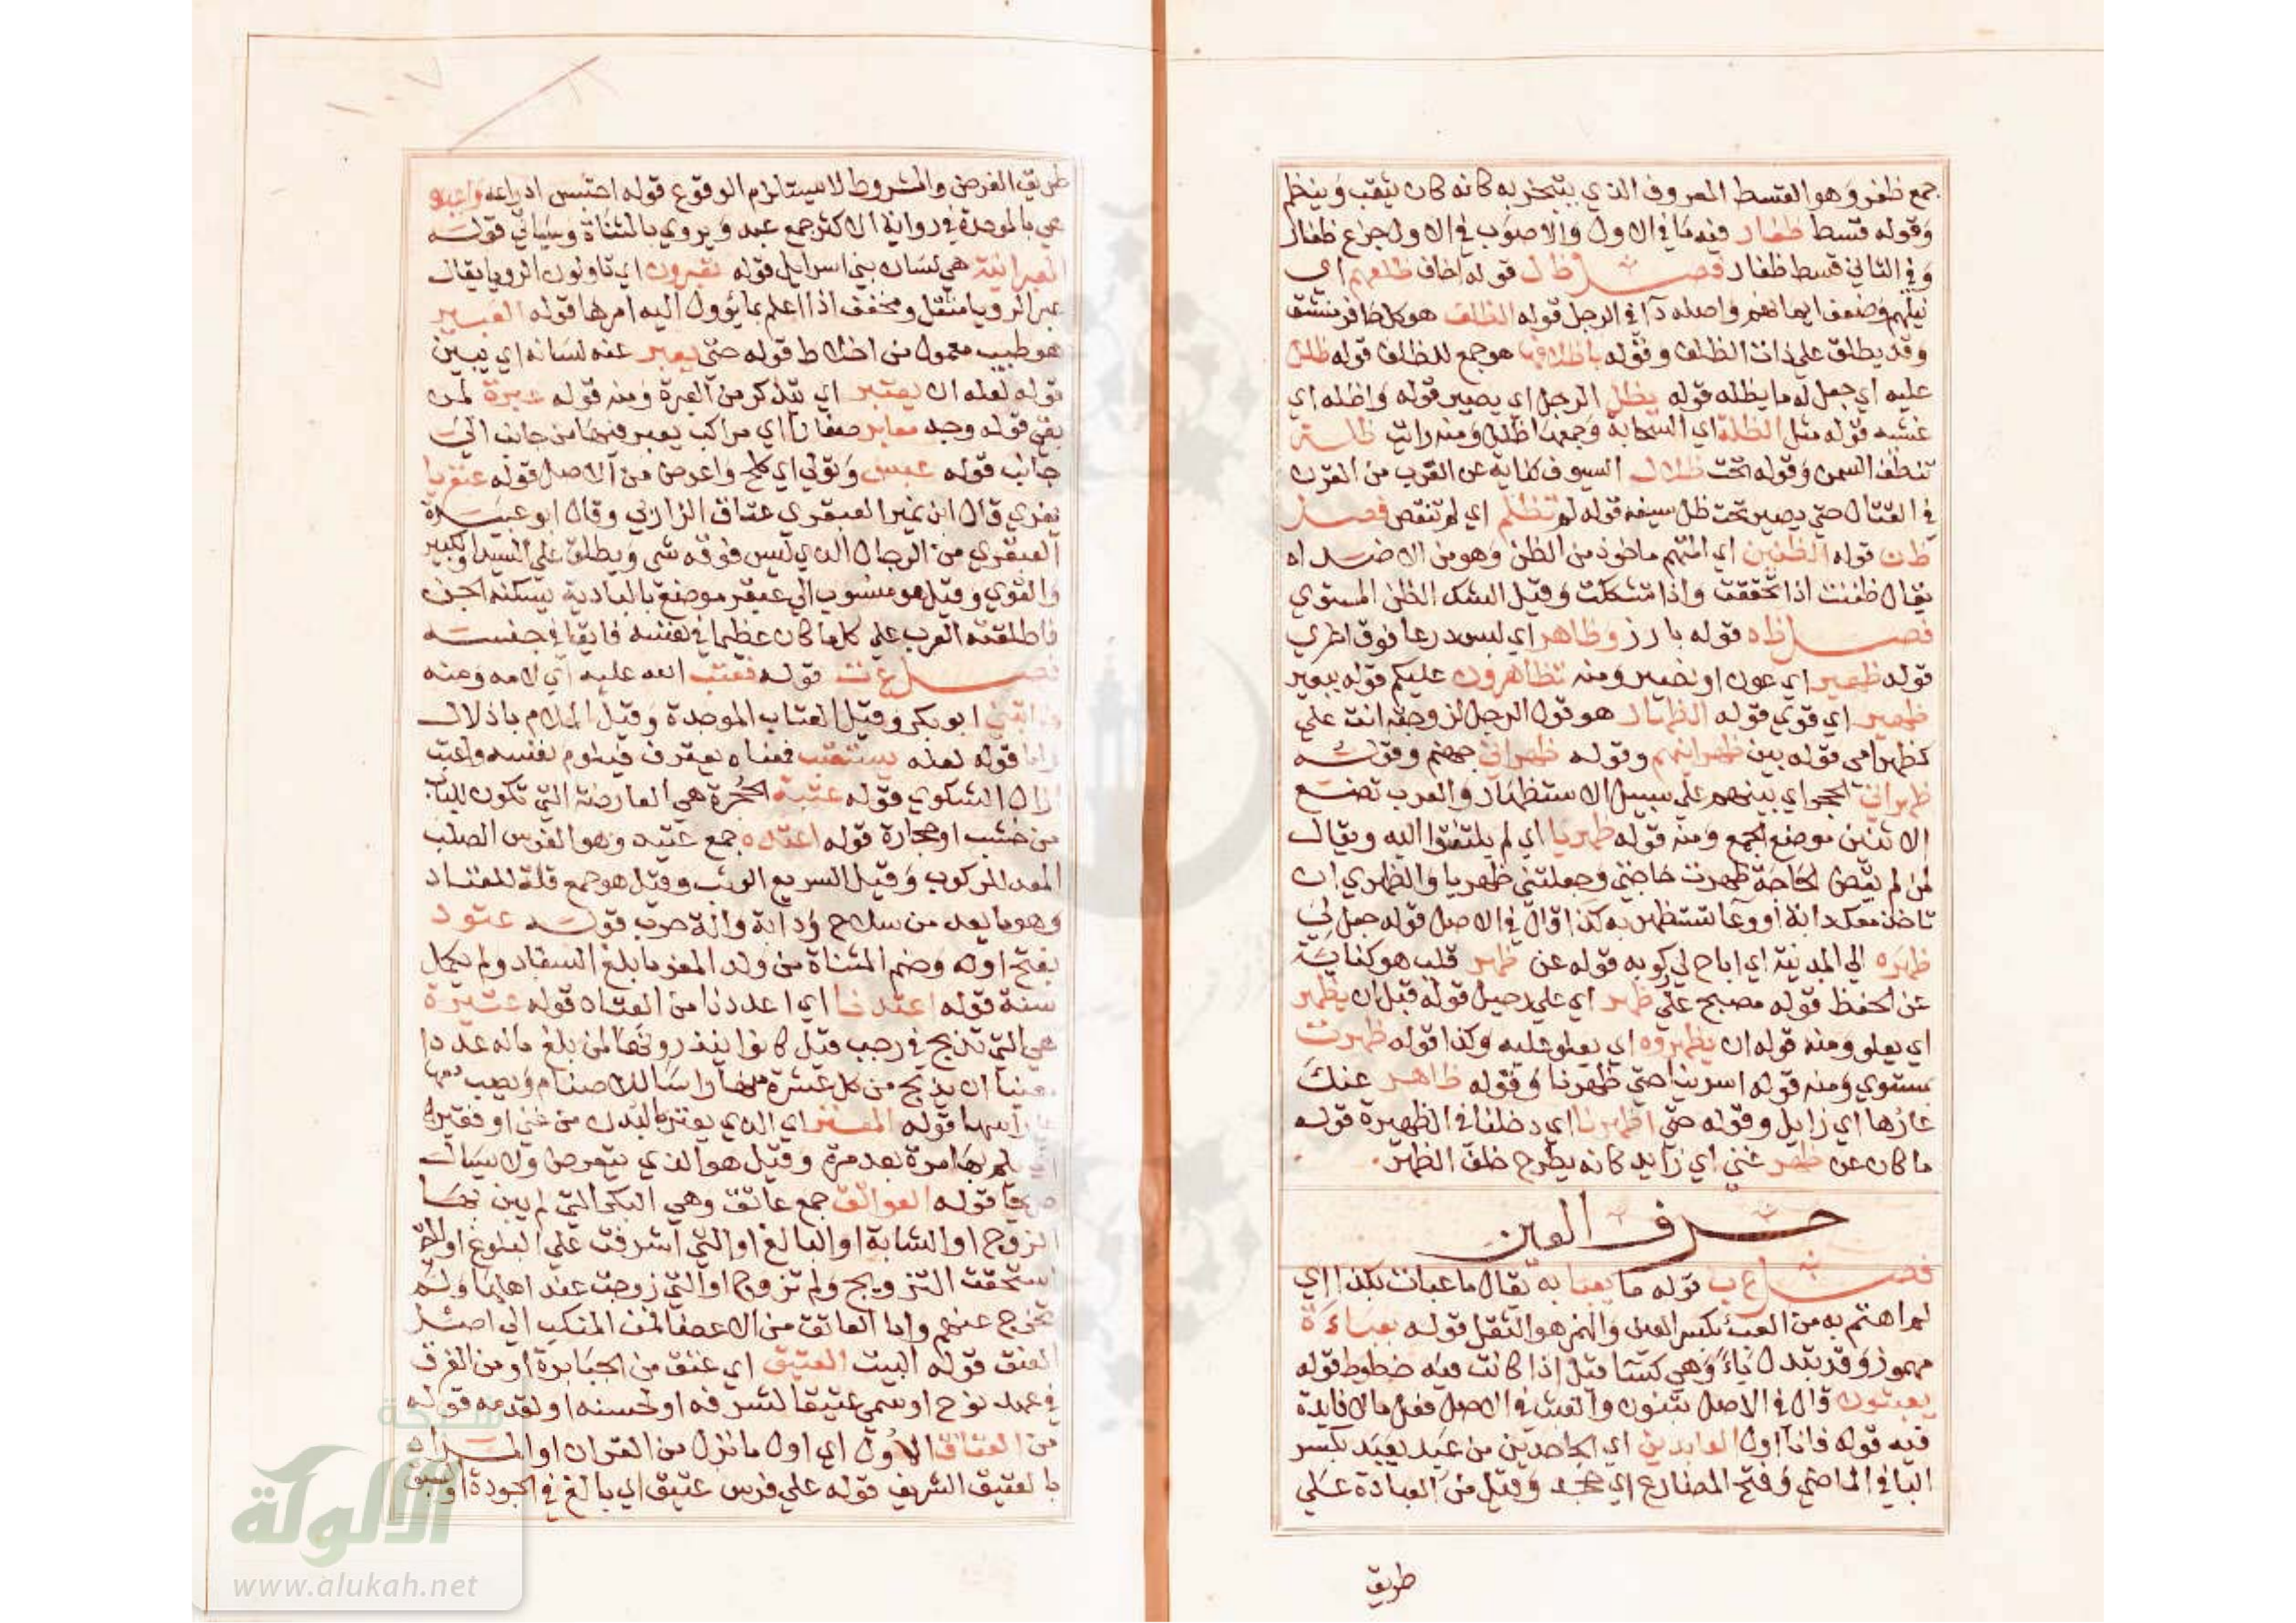 جمع ظفر وهو القسط المعروف الذي يتبخر به كانه كان يثقب وينظم
وقوله قسط ظفار فيه ما في الاول والاصوب في الاول جزع ظفار
وفي الثاني قسط ظفار فصل ظ ل قوله اخاف ظلعهم اي
ميلهم وضعف ايمانهم واصله داء في الرجل قوله الظلف هو كل ظافر منشق
وقد يطلق على ذات الظلف وقوله باظلافها هو جمع للظلف قوله ظلل
عليه اي جعل له ما يظله قوله يظل الرجل اي يصير قوله واظله اي
غشيه قوله مثل الظلة اي السحابة وجمعها ظلل ومنه رايت ظلة
تنطف السمن وقوله تحت ظلال السيوف كناية عن القرب من القرن
في القتال حتى يصير تحت ظل سيفه قوله لم تظلم اي لم تنقص فصل
ظ ن قوله الظنين اي المتهم ماخوذ من الظن وهو من الاضداد
يقال ظننت اذا تحققت واذا تشككت وقيل الشك الظن المستوي
فصل ظ ه قوله بارز وظاهر اي لبس درعا فوق اخري
قوله ظهير اي عون او نصير ومنه تظاهرون عليكم قوله ببعير
ظهير اي قوي قوله الظهار هو قول الرجل لزوجته انت علي
كظهر امي قوله بين ظهرانيهم وقوله ظهراني جهنم وقوله
ظهراني الحجر اي بينهم علي سبيل الاستظهار والعرب تضع
الاثنين موضع الجمع ومنه قوله ظهريا اي لم يلتفتوا اليه ويقال
لمن لم يقض الحاجة ظهرت حاجتي وجعلتني ظهريا والظهري ان
تاخذ معك دابة او وعا تستظهر به كذا قال في الاصل قوله جعل لي
ظهره الي المدينة اي اباح لي ركوبه قوله عن ظهر قلب هو كناية
عن الحفظ قوله مصبح علي ظهر اي علي رحيل قوله قبل ان يظهر
اي يعلو ومنه قوله ان يظهروه اي يعلو عليه وكذا قوله ظهرت
بمستوي ومنه قوله اسرينا حتى ظهرنا وقوله ظاهر عنك
عارها اي زايل وقوله حتى اظهرنا اي دخلنا في الظهيرة قوله
ما كان عن ظهر غني اي زايد كانه يطرح خلف الظهر
حرف العين
فصل ع ب قوله ما يعبا به يقال ما عبات بكذا اي
لم اهتم به من العبء بكسر العين والهمز هو الثقل قوله بعباءة
مهموز وقد تبدل ياء وهي كسا قيل اذا كانت فيه خطوط قوله
يعبثون قال في الاصل يبنون والعبث في الاصل فعل ما لا فايدة
فيه قوله فانا اول العابدين اي الجاحدين من عبد يعبد بكسر
البا في الماضي وفتح المضارع اي جحد وقيل من العبادة علي
طريق
طريق الفرض والمشروط لا يستلزم الوقوع قوله احتبس ادراعه واعبده
هي بالموحدة في رواية الاكثر جمع عبد ويروي بالمثناة وسياتي قوله
العبرانية هي لسان بني اسرايل قوله تعبرون اي تاولون الرويا يقال
عبر الرويا مثقل ومخفف اذا اعلم بما يؤول اليه امرها قوله العبير
هو طيب معمول من اخلاط قوله حتى يعبر عنه لسانه اي يبين
قوله لعله ان يعتبر اي يتذكر من العبرة ومنه قوله عبرة لمن
بقي قوله وجد معابر صغارا اي مراكب يعبر فيها من جانب الي
جانب قوله عبس وتولي اي كلح واعرض من الاصل قوله عبقريا
يفري قال ابن نمير العبقري عتاق الزرابي وقال ابو عبيدة
العبقري من الرجال الذي ليس فوقه شي ويطلق علي السيد والكبير
والقوي وقيل هو منسوب الي عبقر موضع بالبادية يسكنه الجن
فاطلقته العرب علي كل ما كان عظيما في نفسه فايقا في جنسه
فصل ع ت قوله فعتب الله عليه اي لامه ومنه
وعاتبني ابو بكر وقيل العتاب الموجدة وقيل الملام باذلال
واما قوله لعله يستعتب فمعناه يعترف فيلوم نفسه واعتب
ازال الشكوي قوله عتبة الحجرة هي العارضة التي تكون للباب
من خشب او حجارة قوله اعتده جمع عتيد وهو الفرس الصلب
المعد للركوب وقيل السريع الوثب وقيل هو جمع قلة للعتاد
وهو ما يعد من سلاح ودابة والة حرب قوله عتود
بفتح اوله وضم المثناة من ولد المعز ما بلغ السفاد ولم يكمل
سنة قوله اعتدنا اي اعددنا من العتاد قوله عتيرة
هي التي تذبح في رجب قيل كانوا ينذرونها لمن بلغ ماله عددا
معينا ان يذبح من كل عشرة منها راسا للاصنام ويصب دمها
علي راسها قوله المعتر اي الذي يعتر بالبدن من غني او فقير
اي يلم بها مرة بعد مرة وقيل هو الذي يتعرض ولا يسال
صريحا قوله العواتق جمع عاتق وهي البكر التي لم يبن بها
الزوج او الشابة او البالغ او التي اشرفت علي البلوغ او التي
استحقت التزويج ولم تزوج او التي زوجت عند اهلها ولم
تخرج عنهم واما العاتق من الاعضا فمن المنكب الي اصل
العنق قوله البيت العتيق اي عتق من الجبابرة او من الغرق
في عهد نوح او سمي عتيقا لشرفه او لحسنه او لقدمه قوله
من العتاق الاول اي اول ما نزل من القران او المراد
بالعتيق الشريف قوله علي فرس عتيق اي بالغ في الجودة او سبق
شبكة
الألوكة
www.alukah.net